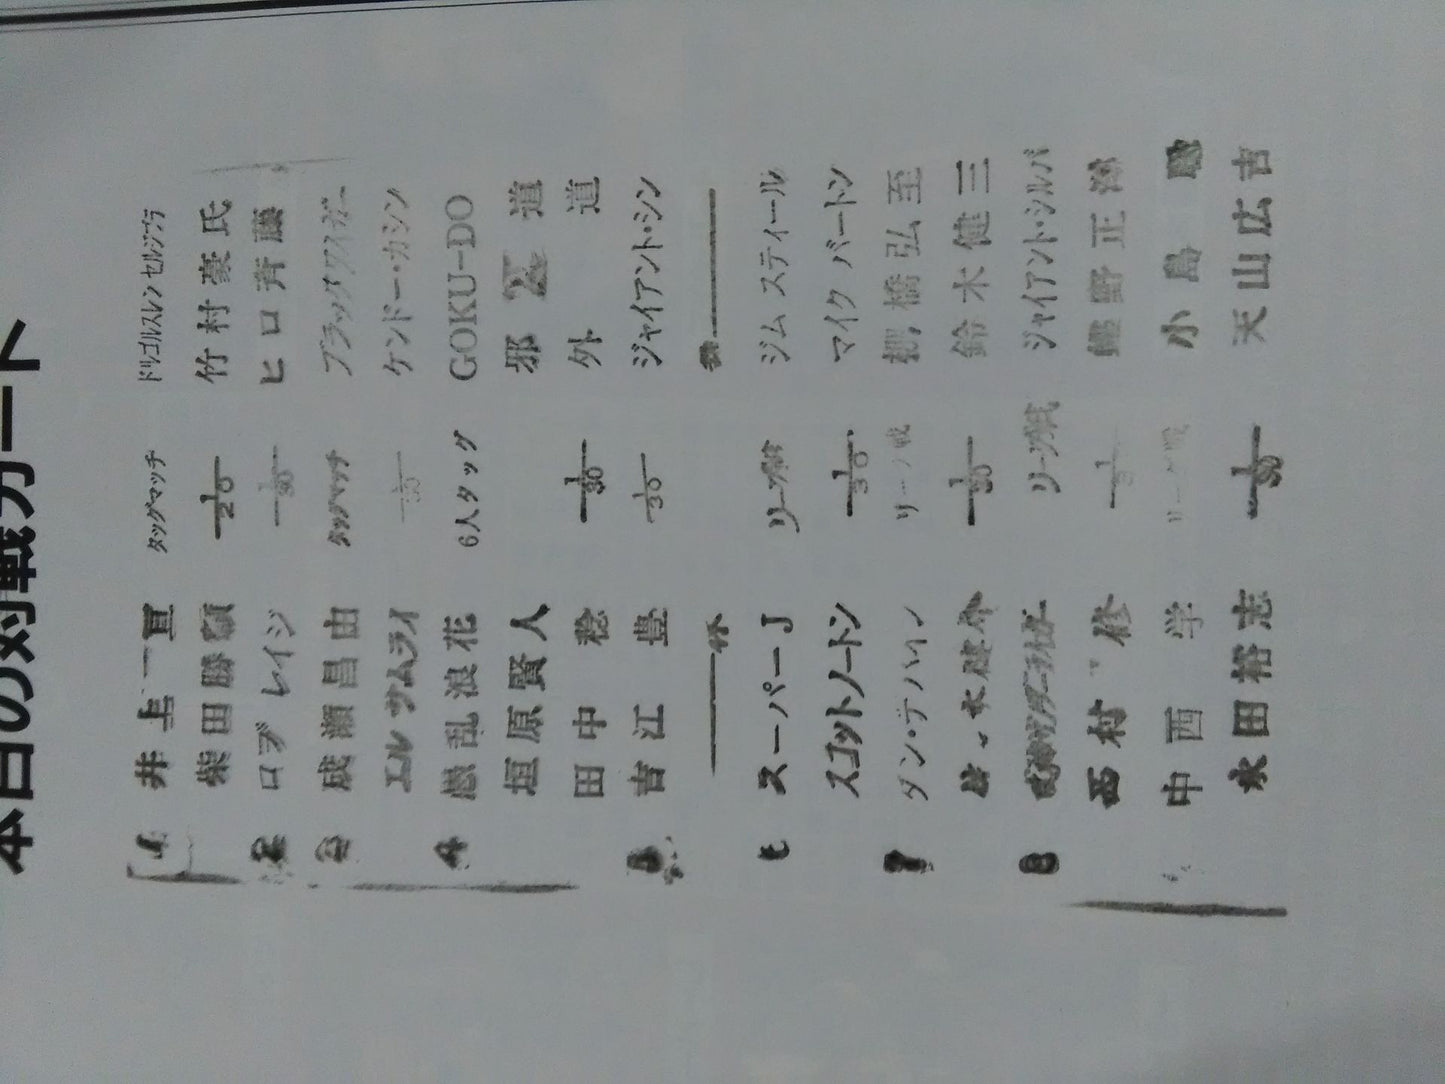 本日の対戦カード
1 井上 亘 タッグマッチ ドルゴルスレン セルジブデ
柴田勝頼 1/20 竹村豪氏
2 ロブ レイジ 1/30 ヒロ斉藤
3 成瀬昌由 タッグマッチ ブラックタイガー
エル サムライ ケンドー・カシン
4 愚乱浪花 6人タッグ GOKU-DO
垣原賢人 邪道
田中 稔 1/30 外道
5 吉江 豊 1/30 ジャイアント・シン
スーパーJ リーグ戦 ジム スティール
スコットノートン 1/30 マイク バートン
7 ダン・デハイン リーグ戦 棚橋弘至
1/30 鈴木健三
8 リーグ戦 ジャイアント・シルバ
西村 修 正洋
中西 学 リーグ戦 小島 聡
永田裕志 1/30 天山広吉